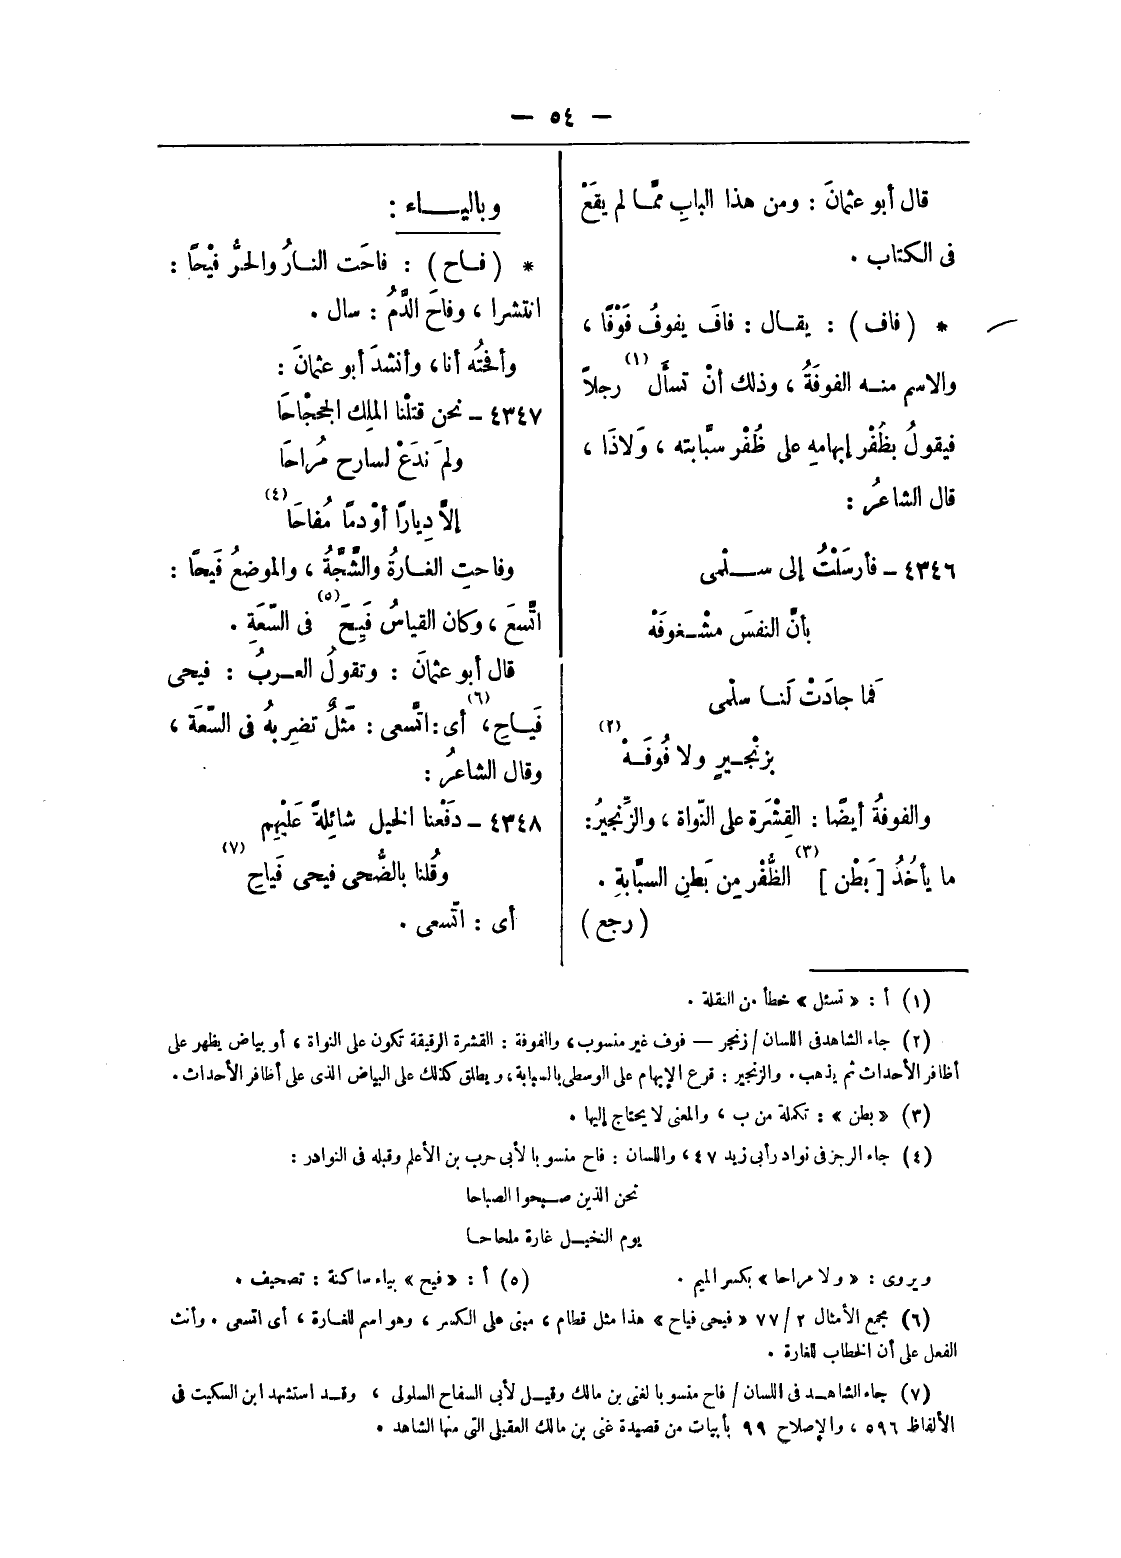 — ٥٤ —
قال أبو عثمانَ : ومن هذا البابِ ممَّا لم يقَعْ
فى الكتاب .
* ( فاف ) : يقال : فافَ يفوفُ فَوْفًا ،
والاسم منه الفوفَةُ ، وذلك أنْ تسأَل (١) رجلاً
فيقولُ بظُفْر إبهامهِ على ظُفْر سبَّابته ، وَلاذَا ،
قال الشاعرُ :
٤٣٤٦ ـ فأرسَلْتُ إلى سلْمى
بأنَّ النفسَ مشْغوفَهْ
فَما جادَتْ لَنا سلْمى
بزنْجيرٍ ولا فُوفَهْ (٢)
والفوفةُ أيضًا : القِشْرَة على النّواة ، والزِّنجيرُ:
ما يأخُذُ [ بَطْن ] (٣) الظُّفْر مِن بَطنِ السبَّابةِ .
( رجع )
وبالياء :
* ( فاح ) : فاحَت النارُ والحرُّ فيْحًا :
انتشرا ، وفاحَ الدَّمُ : سال .
وأفحتُه أنا ، وأنشدَ أبو عثمانَ :
٤٣٤٧ ـ نحن قتلْنا الملِك الجحجْاحَا
ولمَ ندَعْ لسارح مُراحَا
إلاَّ دِيارًا أوْ دمًا مُفاحَا (٤)
وفاحتِ الغارةُ والشَّجَّةُ ، والموضعُ فَيحًا :
اتَّسعَ ، وكان القياسُ فَيِحَ (٥) فى السّعَةِ .
قال أبو عثمانَ : وتقولُ العربُ : فيحى
فَياحِ (٦) ، أى : اتَّسعى : مَثلٌ تضرِبهُ فى السّعَة ،
وقال الشاعرُ :
٤٣٤٨ ـ دفَعْنا الخيل شائِلةً عَليْهِم
وقُلنا بالضُّحى فيحى فَياحِ (٧)
أى : اتّسعى .
(١) أ : « تسئل » خطأ من النقلة .
(٢) جاء الشاهد فى اللسان / زنجر — فوف غير منسوب ، والفوفة : القشرة الرقيقة تكون على النواة ، أو بياض يظهر على
أظافر الأحداث ثم يذهب . والزنجير : قرع الإبهام على الوسطى بالسبابة ، ويطلق كذلك على البياض الذى على أظافر الأحداث .
(٣) « بطن » : تكملة من ب ، والمعنى لا يحتاج إليها .
(٤) جاء الرجز فى نوادر أبى زيد ٤٧ ، واللسان : فاح منسوبا لأبى حرب بن الأعلم وقبله فى النوادر :
نحن الذين صبحوا الصباحا
يوم النخيل غارة ملحاحا
ويروى : « ولا مراحا » بكسر الميم .
(٥) أ : « فيح » بياء ساكنة : تصحيف .
(٦) مجمع الأمثال ٢ / ٧٧ « فيحى فياح » هذا مثل قطام ، مبنى على الكسر ، وهو اسم للغارة ، أى اتسعى . وأنث
الفعل على أن الخطاب للغارة .
(٧) جاء الشاهد فى اللسان / فاح منسوبا لغنى بن مالك وقيل لأبى السفاح السلولى ، وقد استشهد ابن السكيت فى
الألفاظ ٥٩٦ ، والإصلاح ٩٩ بأبيات من قصيدة غنى بن مالك العقيلى التى منها الشاهد .